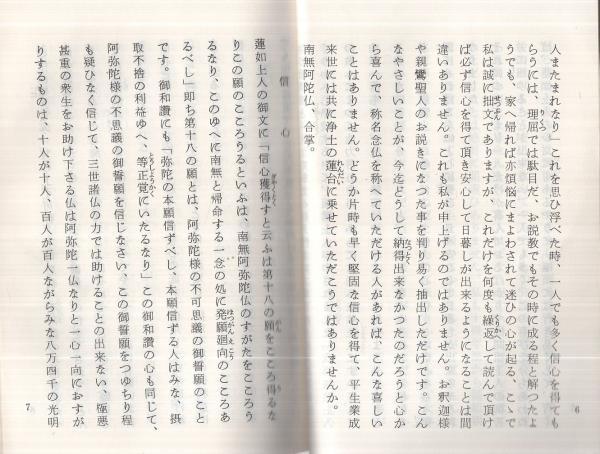 人またまれなり」これを思ひ浮べた時、一人でも多く信心を得ても
らうには、理屈では駄目だ、お説教でもその時に成る程と解つたよ
うでも、家へ帰れば亦煩悩にまよわされて迷ひの心が起る、こゝで
私は誠に拙文でありますが、これだけを何度も繰返して読んで頂け
ば必ず信心を得て頂き安心して日暮しが出来るようになることは間
違いありません。これも私が申上げるのではありません。お釈迦様
や親鸞聖人のお説きになつた事を判り易く抽出しただけです。こん
なやさしいことが、今迄どうして納得出来なかつたのだろうと心か
ら喜んで、称名念仏を称へていただける人があれば、こんな喜しい
ことはありません。どうか片時も早く堅固な信心を得て、平生業成
来世には共に浄土の蓮台に乗せていただこうではありませんか。
南無阿陀仏、合掌。
6
信心
蓮如上人の御文に「信心獲得すと云ふは第十八の願をこころ得るな
りこの願のこころうるといふは、南無阿弥陀仏のすがたをこころう
るなり、このゆへに南無と帰命する一念の処に発願廻向のこころあ
るべし」即ち第十八の願とは、阿弥陀様の不可思議の御誓願のこと
です。御和讃にも「弥陀の本願信ずべし、本願信ずる人はみな、摂
取不捨の利益ゆへ、等正覚にいたるなり」この御和讃の心も同じて、
阿弥陀様の不思議の御誓願を信じなさい、この御誓願をつゆちり程
も疑ひなく信じて、三世諸仏の力では助けることの出来ない、極悪
甚重の衆生をお助け下さる仏は阿弥陀一仏なりと一心一向におすが
りするものは、十人が十人、百人が百人ながらみな八万四千の光明
7